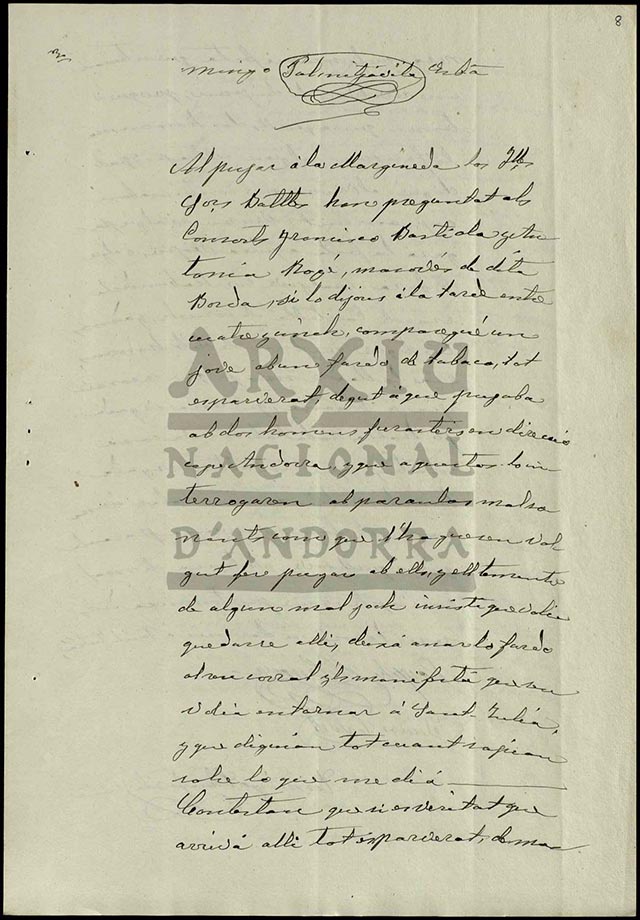 8
mingo Palmitjavila Esba
Al pujar á la Margineda los Ill.es
Srs Batlles han preguntat als
Consorts Francisco Bastida y An
tonia Rogé, masovés de dita
Borda, si lo dijous á la tarde entre
cuatre y cinch, comparegué un
jove ab un fardo de tabaco, tot
esparverat, degut á que pujaba
ab dos homens forasters en direcció
cap Andorra, y que aquestos lo in
terrogaren ab paraulas malso
nants com que l'haguesen vol
gut fer pujar ab ells, y ell temente
de algun mal joch insistí que volia
quedarse allí, deixá anar lo fardo
al seu corral y'ls manifestá que se'n
volia entornar á Sant Juliá,
y que diguian tot cuant sapian
sobre lo que me diá
Contestan que si es veritat que
arrivá allí tot esparverat, dema
ARXIU
NACIONAL
D'ANDORRA